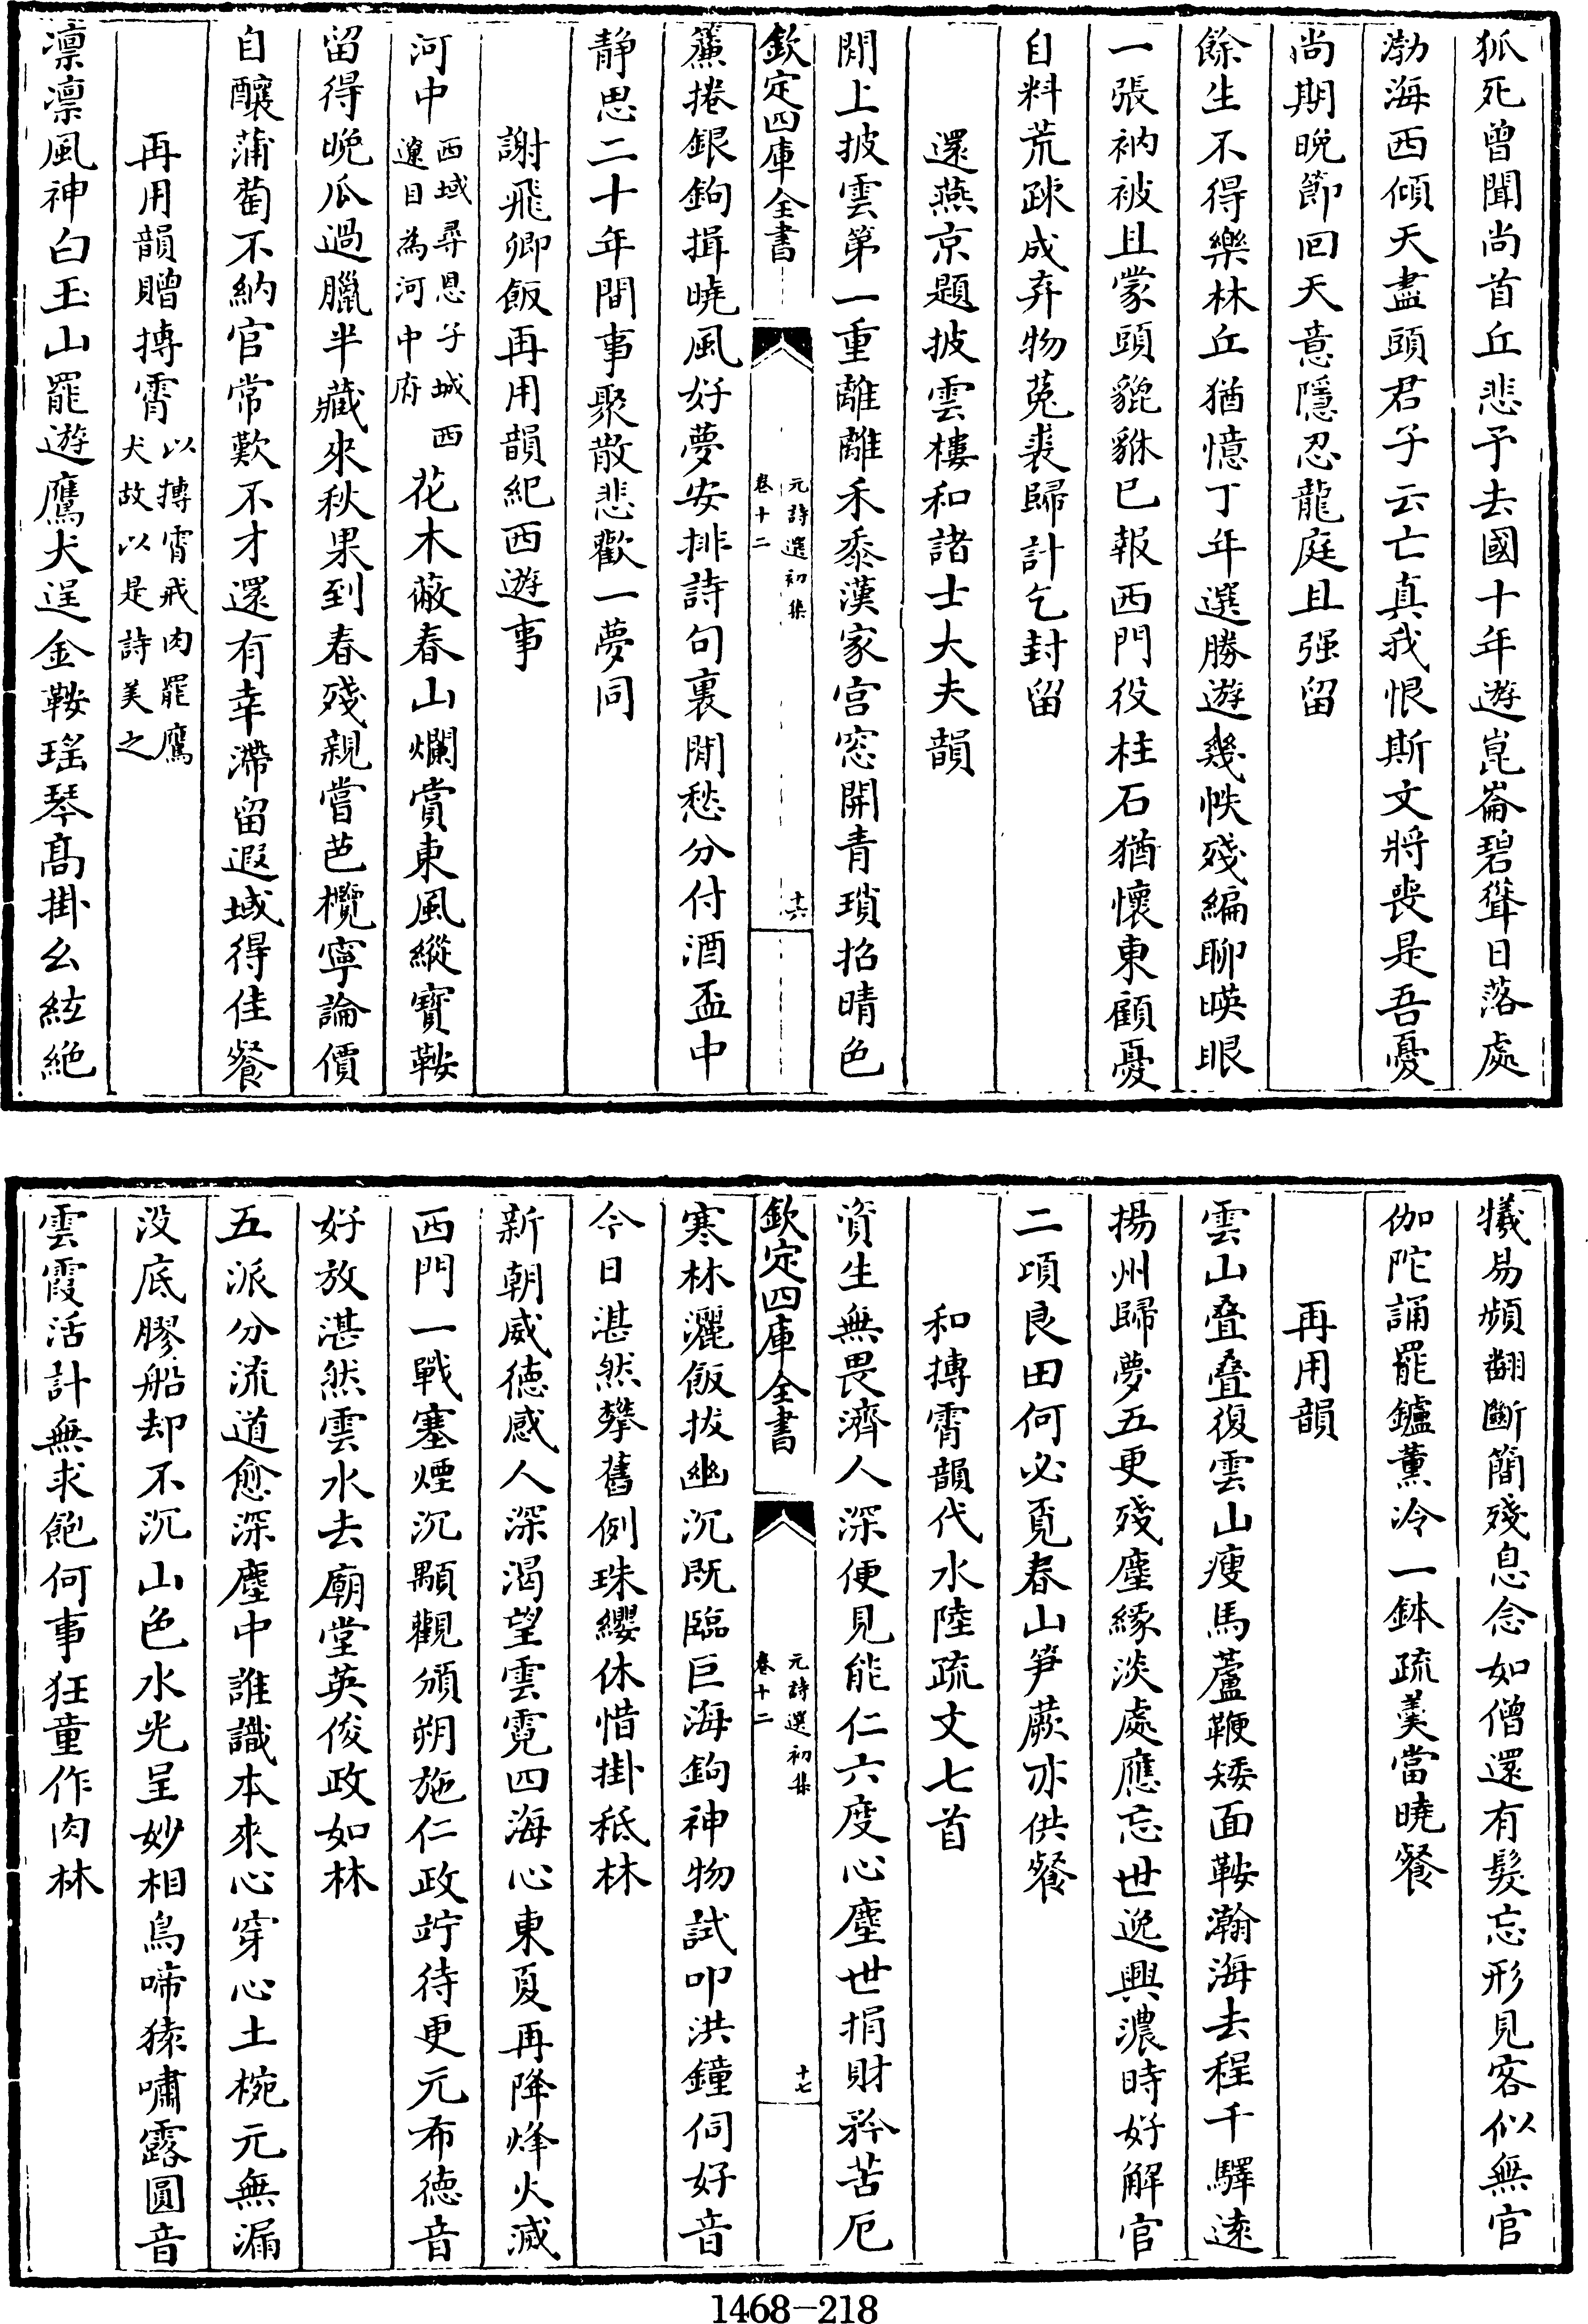 狐死曾聞尚首丘悲予去國十年遊崑崙碧聳日落處
渤海西傾天盡頭君子云亡真我恨斯文將喪是吾憂
尚期晚節回天意隱忍龍庭且强留
餘生不得樂林丘猶憶丁年選勝遊幾帙殘編聊暎眼
一張衲被且蒙頭貔貅已報西門役柱石猶懷東顧憂
自料荒疎成弃物菟裘歸計乞封留
還燕京題披雲樓和諸士大夫韻
閒上披雲第一重離離禾黍漢家宫窓開青瑣招晴色
欽定四庫全書
元詩選初集
卷十二
十六
簾捲銀鉤揖曉風好夢安排詩句裏閒愁分付酒盃中
静思二十年間事聚散悲歡一夢同
謝飛卿飯再用韻紀西遊事
河中西域尋思干城西遼目為河中府花木蔽春山爛賞東風縱寶鞍
留得晚瓜過臘半藏來秋果到春殘親嘗芭欖寧論價
自釀蒲萄不納官常歎不才還有幸滯留遐域得佳餐
再用韻贈摶霄以摶霄戒肉罷鷹犬故以是詩美之
凛凛風神白玉山罷遊鷹犬逞金鞍瑤琴髙掛幺絃絶
犧易頻翻斷簡殘息念如僧還有髮忘形見客似無官
伽陀誦罷鑪薰冷一鉢疏羹當曉餐
再用韻
雲山叠叠復雲山痩馬蘆鞭矮面鞍瀚海去程千驛逺
揚州歸夢五更殘塵緣淡處應忘世逸興濃時好解官
二項良田何必覓春山笋蕨亦供餐
和摶霄韻代水陸疏文七首
資生無畏濟人深便見能仁六度心塵世捐財矜苦厄
欽定四庫全書
元詩選初集
卷十二
十七
寒林灑飯拔幽沉既臨巨海鉤神物試叩洪鐘伺好音
今日湛然攀舊例珠纓休惜掛秪林
新朝威徳感人深渴望雲霓四海心東夏再降烽火滅
西門一戰塞煙沉顒觀頒朔施仁政竚待更元布徳音
好放湛然雲水去廟堂英俊政如林
五派分流道愈深塵中誰識本來心穿心土椀元無漏
没底膠船却不沉山色水光呈妙相鳥啼猿嘯露圓音
雲霞活計無求飽何事狂童作肉林
1468-218